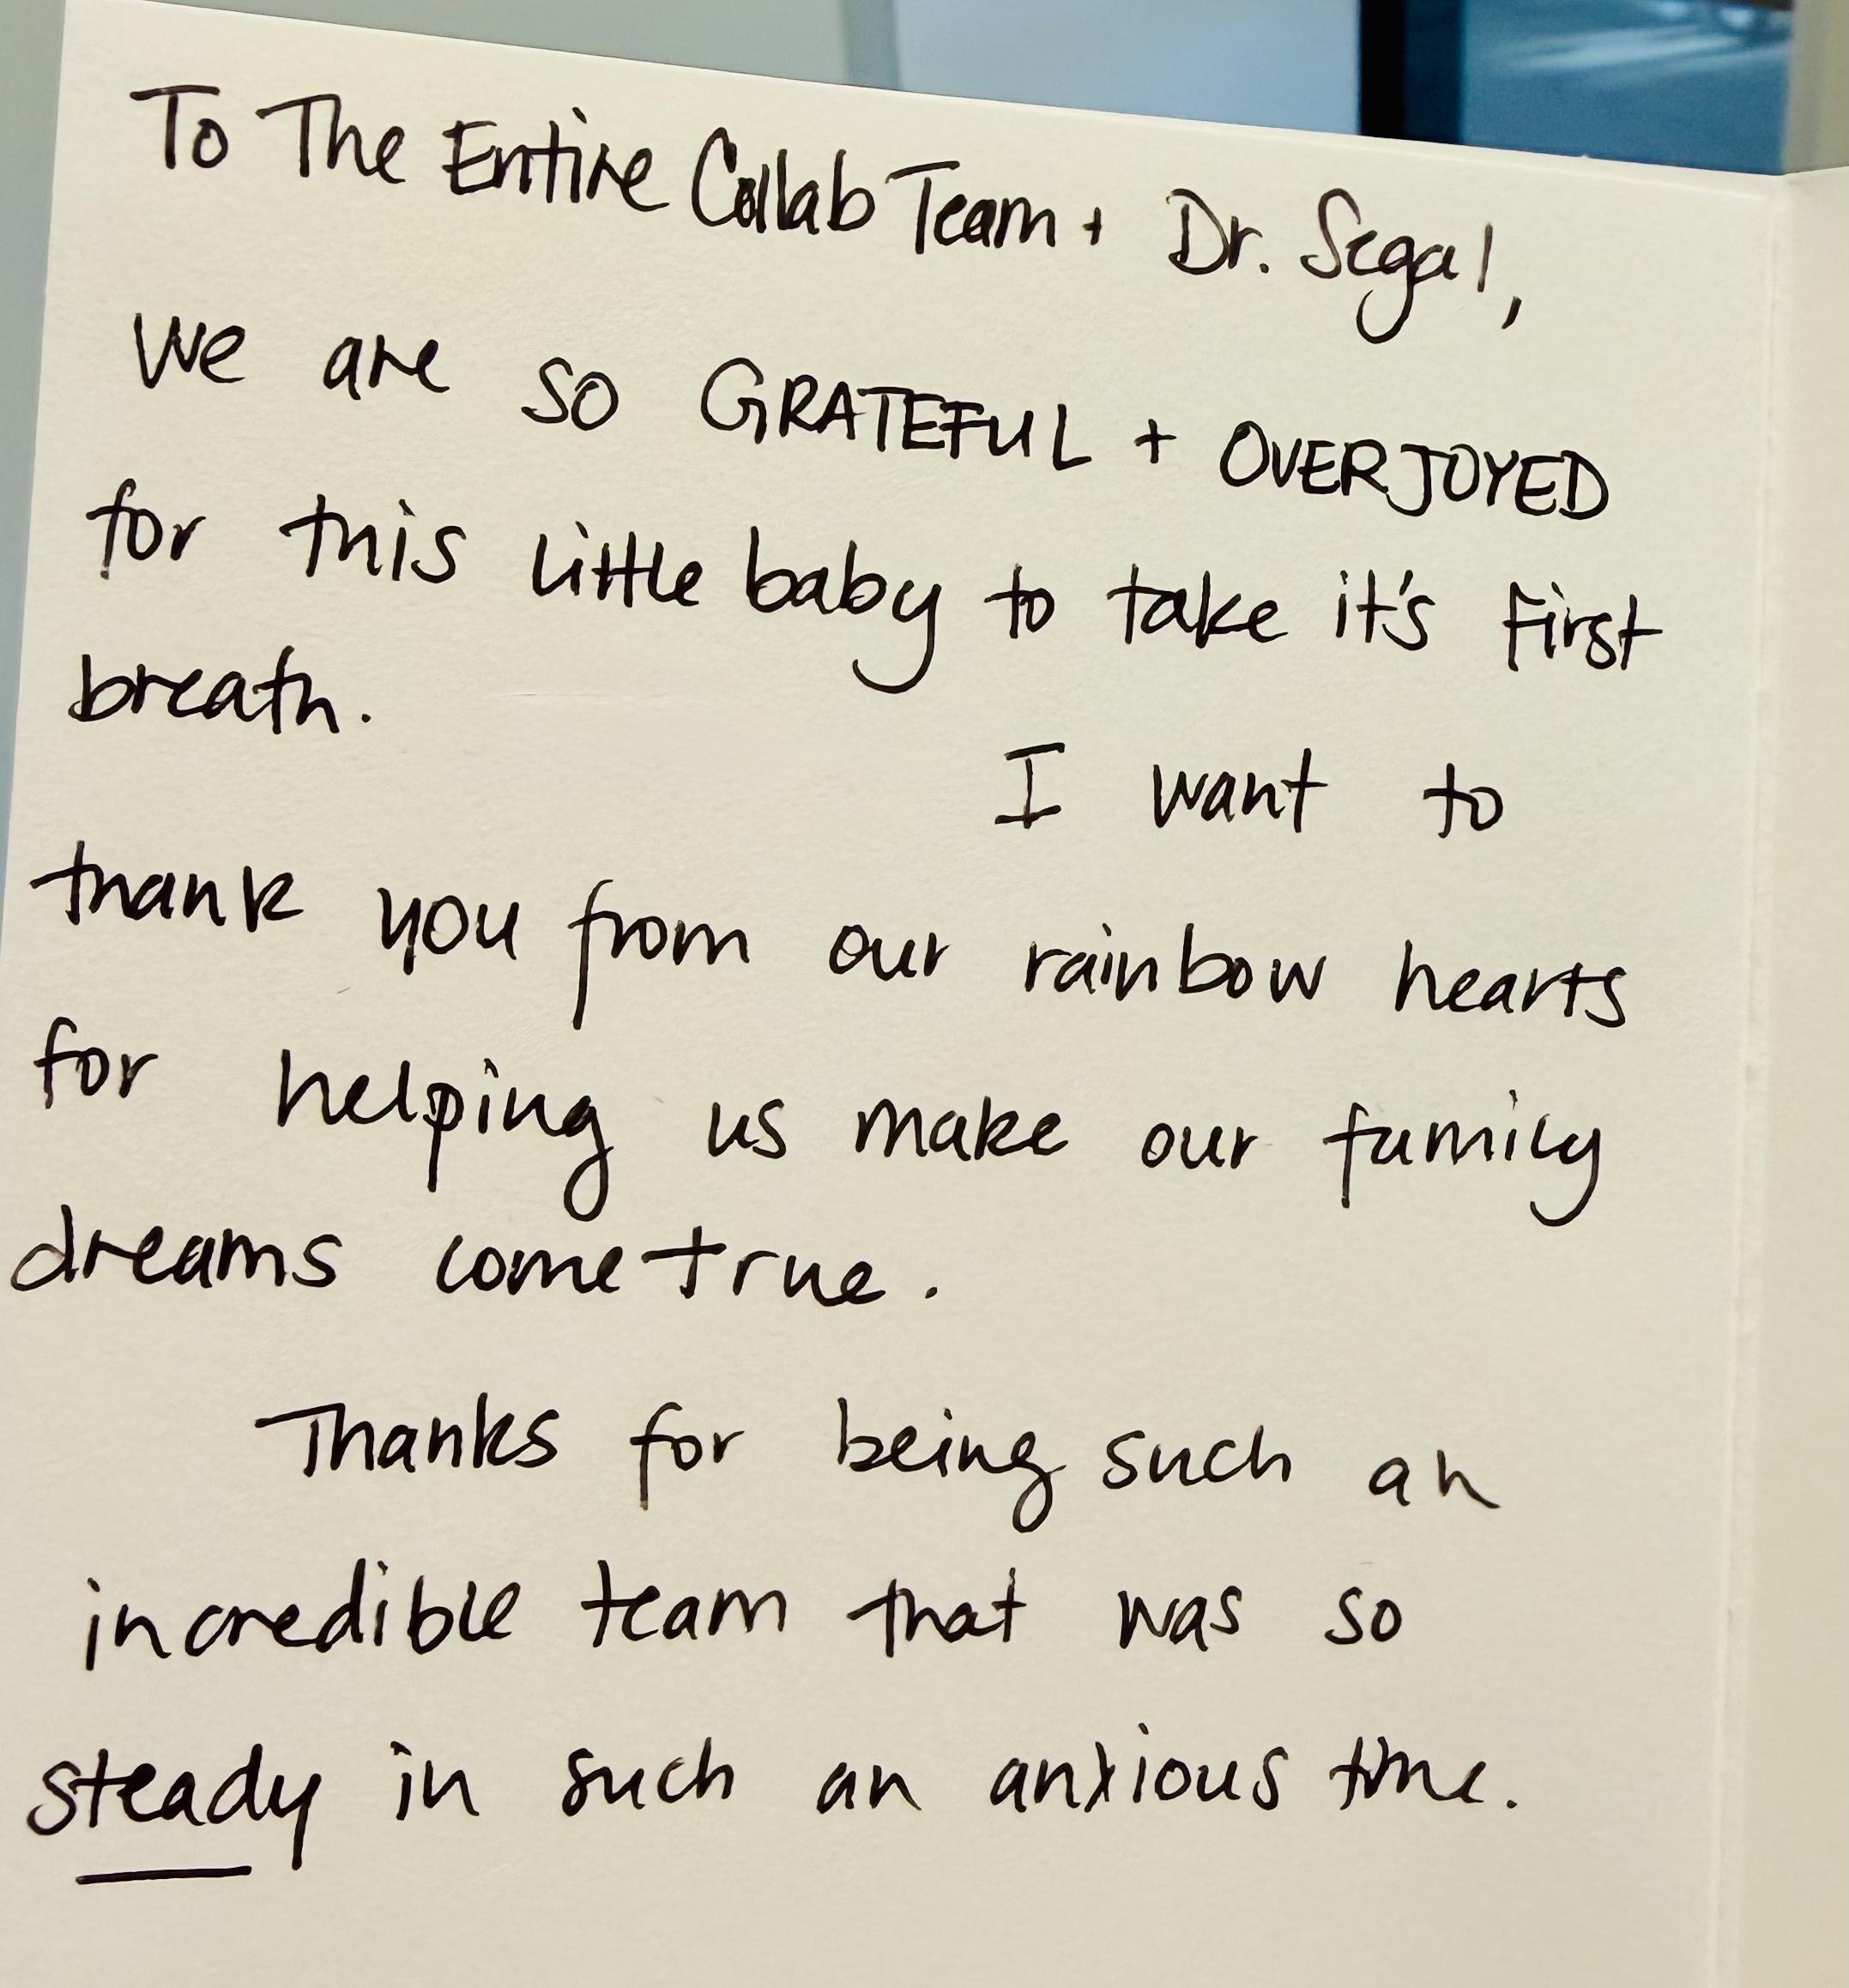 To The Entire Collab Team + Dr. Segal,
We are so GRATEFUL + OVERJOYED
for this little baby to take it's first
breath.
I want to
thank you from our rainbow hearts
for helping us make our family
dreams come true.
Thanks for being such an
incredible team that was so
steady in such an anxious time.